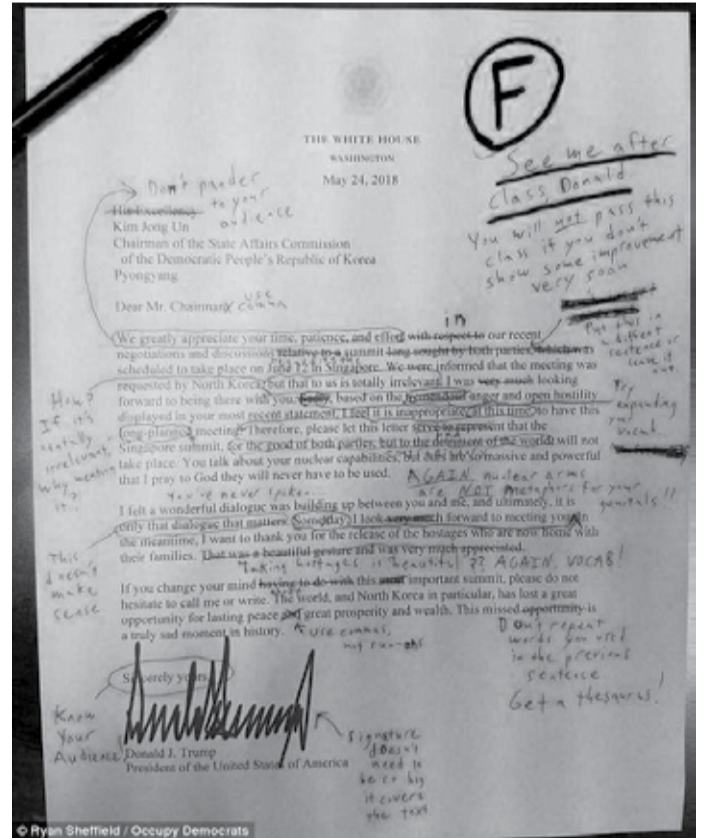 F
See me after
class, Donald
You will not pass this
class if you don't
show some improvement
very soon
THE WHITE HOUSE
WASHINGTON
May 24, 2018
Don't pander
to your
audience
His Excellency
Kim Jong Un
Chairman of the State Affairs Commission
of the Democratic People's Republic of Korea
Pyongyang
Dear Mr. Chairman
use
comma
in
We greatly appreciate your time, patience, and effort with respect to our recent
negotiations and discussions relative to a summit long sought by both parties, which was
scheduled to take place on June 12 in Singapore. We were informed that the meeting was
requested by North Korea, but that to us is totally irrelevant. I was very much looking
forward to being there with you. Sadly, based on the tremendous anger and open hostility
displayed in your most recent statement, I feel it is inappropriate, at this time, to have this
long-planned meeting. Therefore, please let this letter serve to represent that the
Singapore summit, for the good of both parties, but to the detriment of the world, will not
take place. You talk about your nuclear capabilities, but ours are so massive and powerful
that I pray to God they will never have to be used.
Put this in
a different
sentence or
leave it
out.
Try
expanding
your
vocab.
How?
If it's
totally
irrelevant,
why mention
it...
AGAIN, nuclear arms
are NOT metaphors for your
genitals!!
You've never spoken...
I felt a wonderful dialogue was building up between you and me, and ultimately, it is
only that dialogue that matters. Some day, I look very much forward to meeting you. In
the meantime, I want to thank you for the release of the hostages who are now home with
their families. That was a beautiful gesture and was very much appreciated.
Taking hostages is beautiful?? AGAIN, VOCAB!
This
doesn't
make
sense
If you change your mind having to do with this most important summit, please do not
hesitate to call me or write. The world, and North Korea in particular, has lost a great
opportunity for lasting peace and great prosperity and wealth. This missed opportunity is
a truly sad moment in history.
use commas,
not run-ons
Don't repeat
words you used
in the previous
sentence.
Get a thesaurus!
Sincerely yours,
Know
Your
Audience
Donald J. Trump
President of the United States of America
Signature
doesn't
need to
be so big
it covers
the text
© Ryan Sheffield / Occupy Democrats